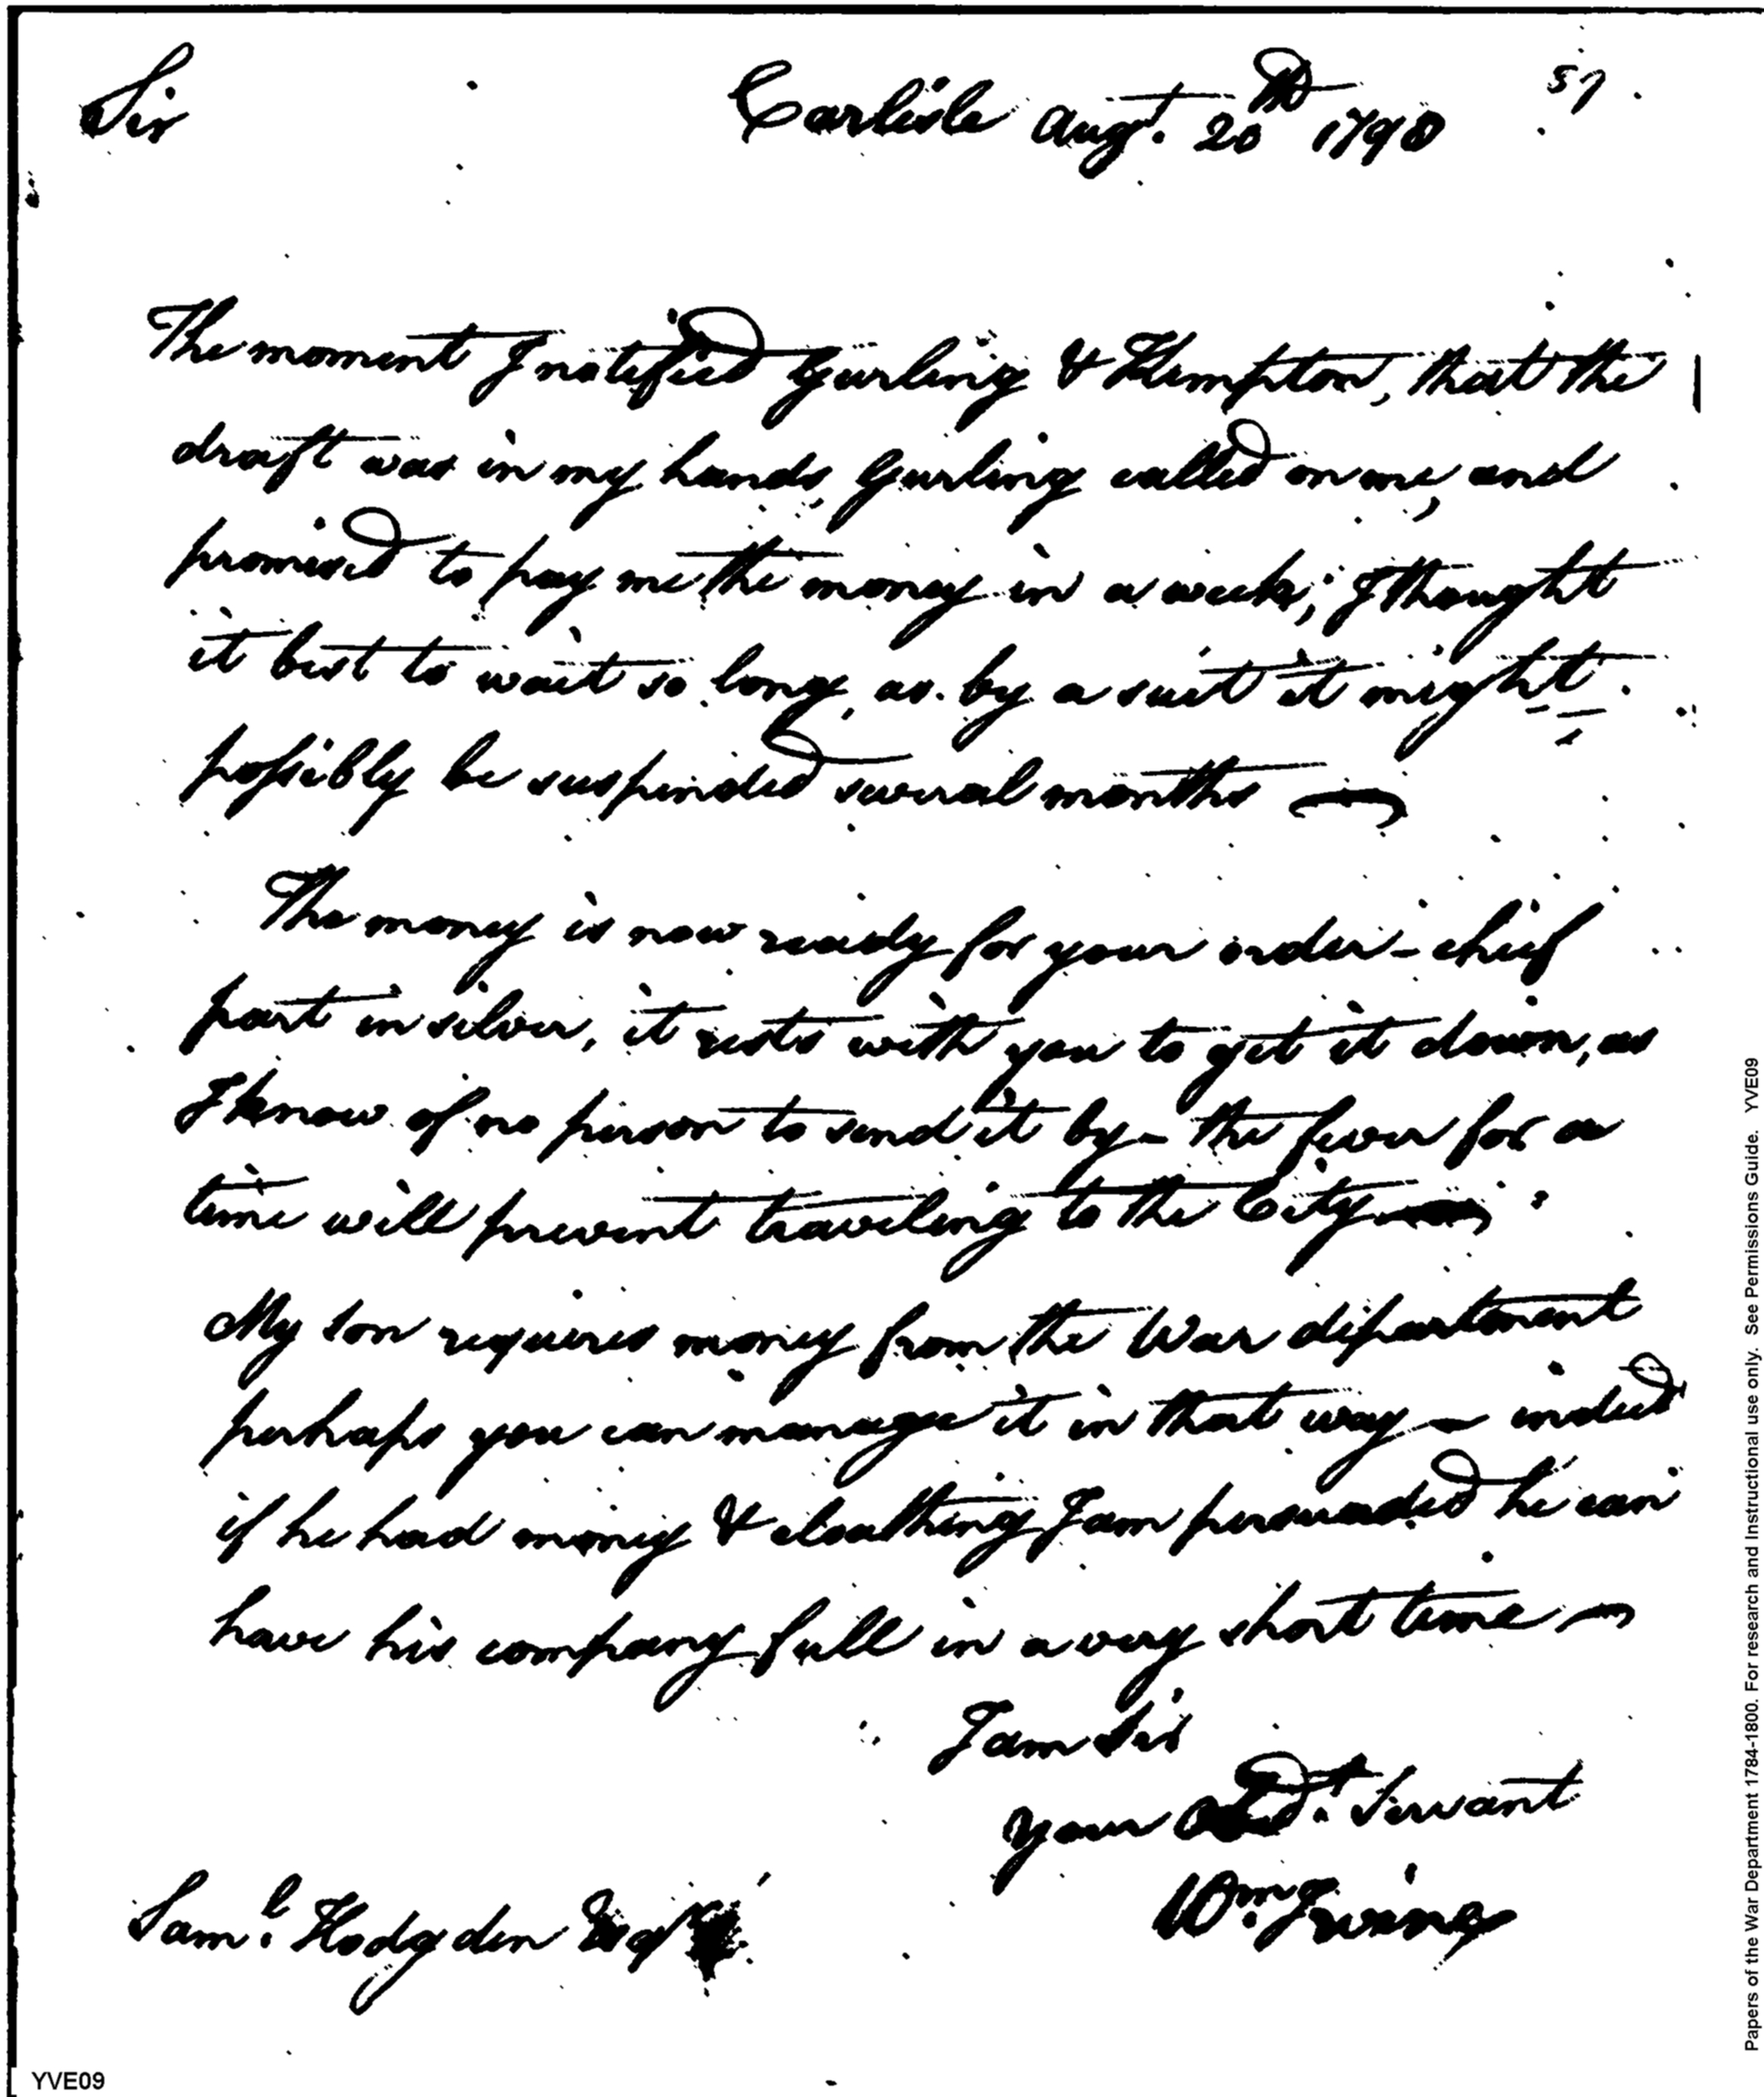 Sir Carlisle Augt. 20th 1798 57
The moment I notified Gurling & Kempton, that the
draft was in my hands, Gurling called on me, and
promised to pay me the money in a week; I thought
it best to wait so long, as by a suit it might
possibly be suspended several months
The money is now ready for your order - chief
part in silver, it rests with you to get it down, as
I know of no person to send it by - the fever for a
time will prevent traveling to the City
My son requires money from the War department
perhaps you can manage it in that way - indeed
if he had money & cloathing I am persuaded he can
have his company full in a very short time
I am Sir
your Obdt. Servant
Wm. Irvine
Saml. Hodgden Esqr
YVE09
Papers of the War Department 1784-1800. For research and Instructional use only. See Permissions Guide. YVE09